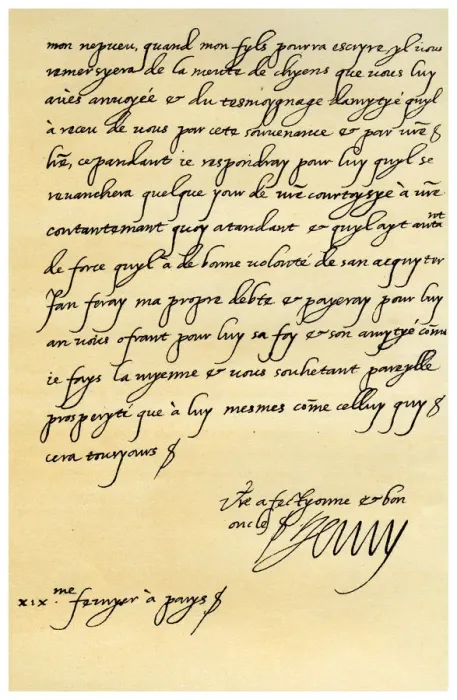 mon nepueu, quand mon fyls pourra escryre, yl vous
remersyera de la meute de chyens que vous luy
aués anuoyée & du tesmoygnage damytyé quyl
à receu de vous par cete souuenance & par vre
lre, cepandant ie respondray pour luy quyl se
reuanchera quelque your de vre courtoysye à vre
contantemant quoy atandant & quyl ayt autant
de force quyl à de bonne volonté de san aquyter
Jan feray ma propre debte & payeray pour luy
an vous ofrant pour luy sa foy & son amytyé cõme
ie fays la myenne & vous souhetant pareylle
prosperyté que à luy mesmes cõme celluy quy
cera tousyours
Vre afectyonne & bon
oncle Henry
xix.me feuryer à parys